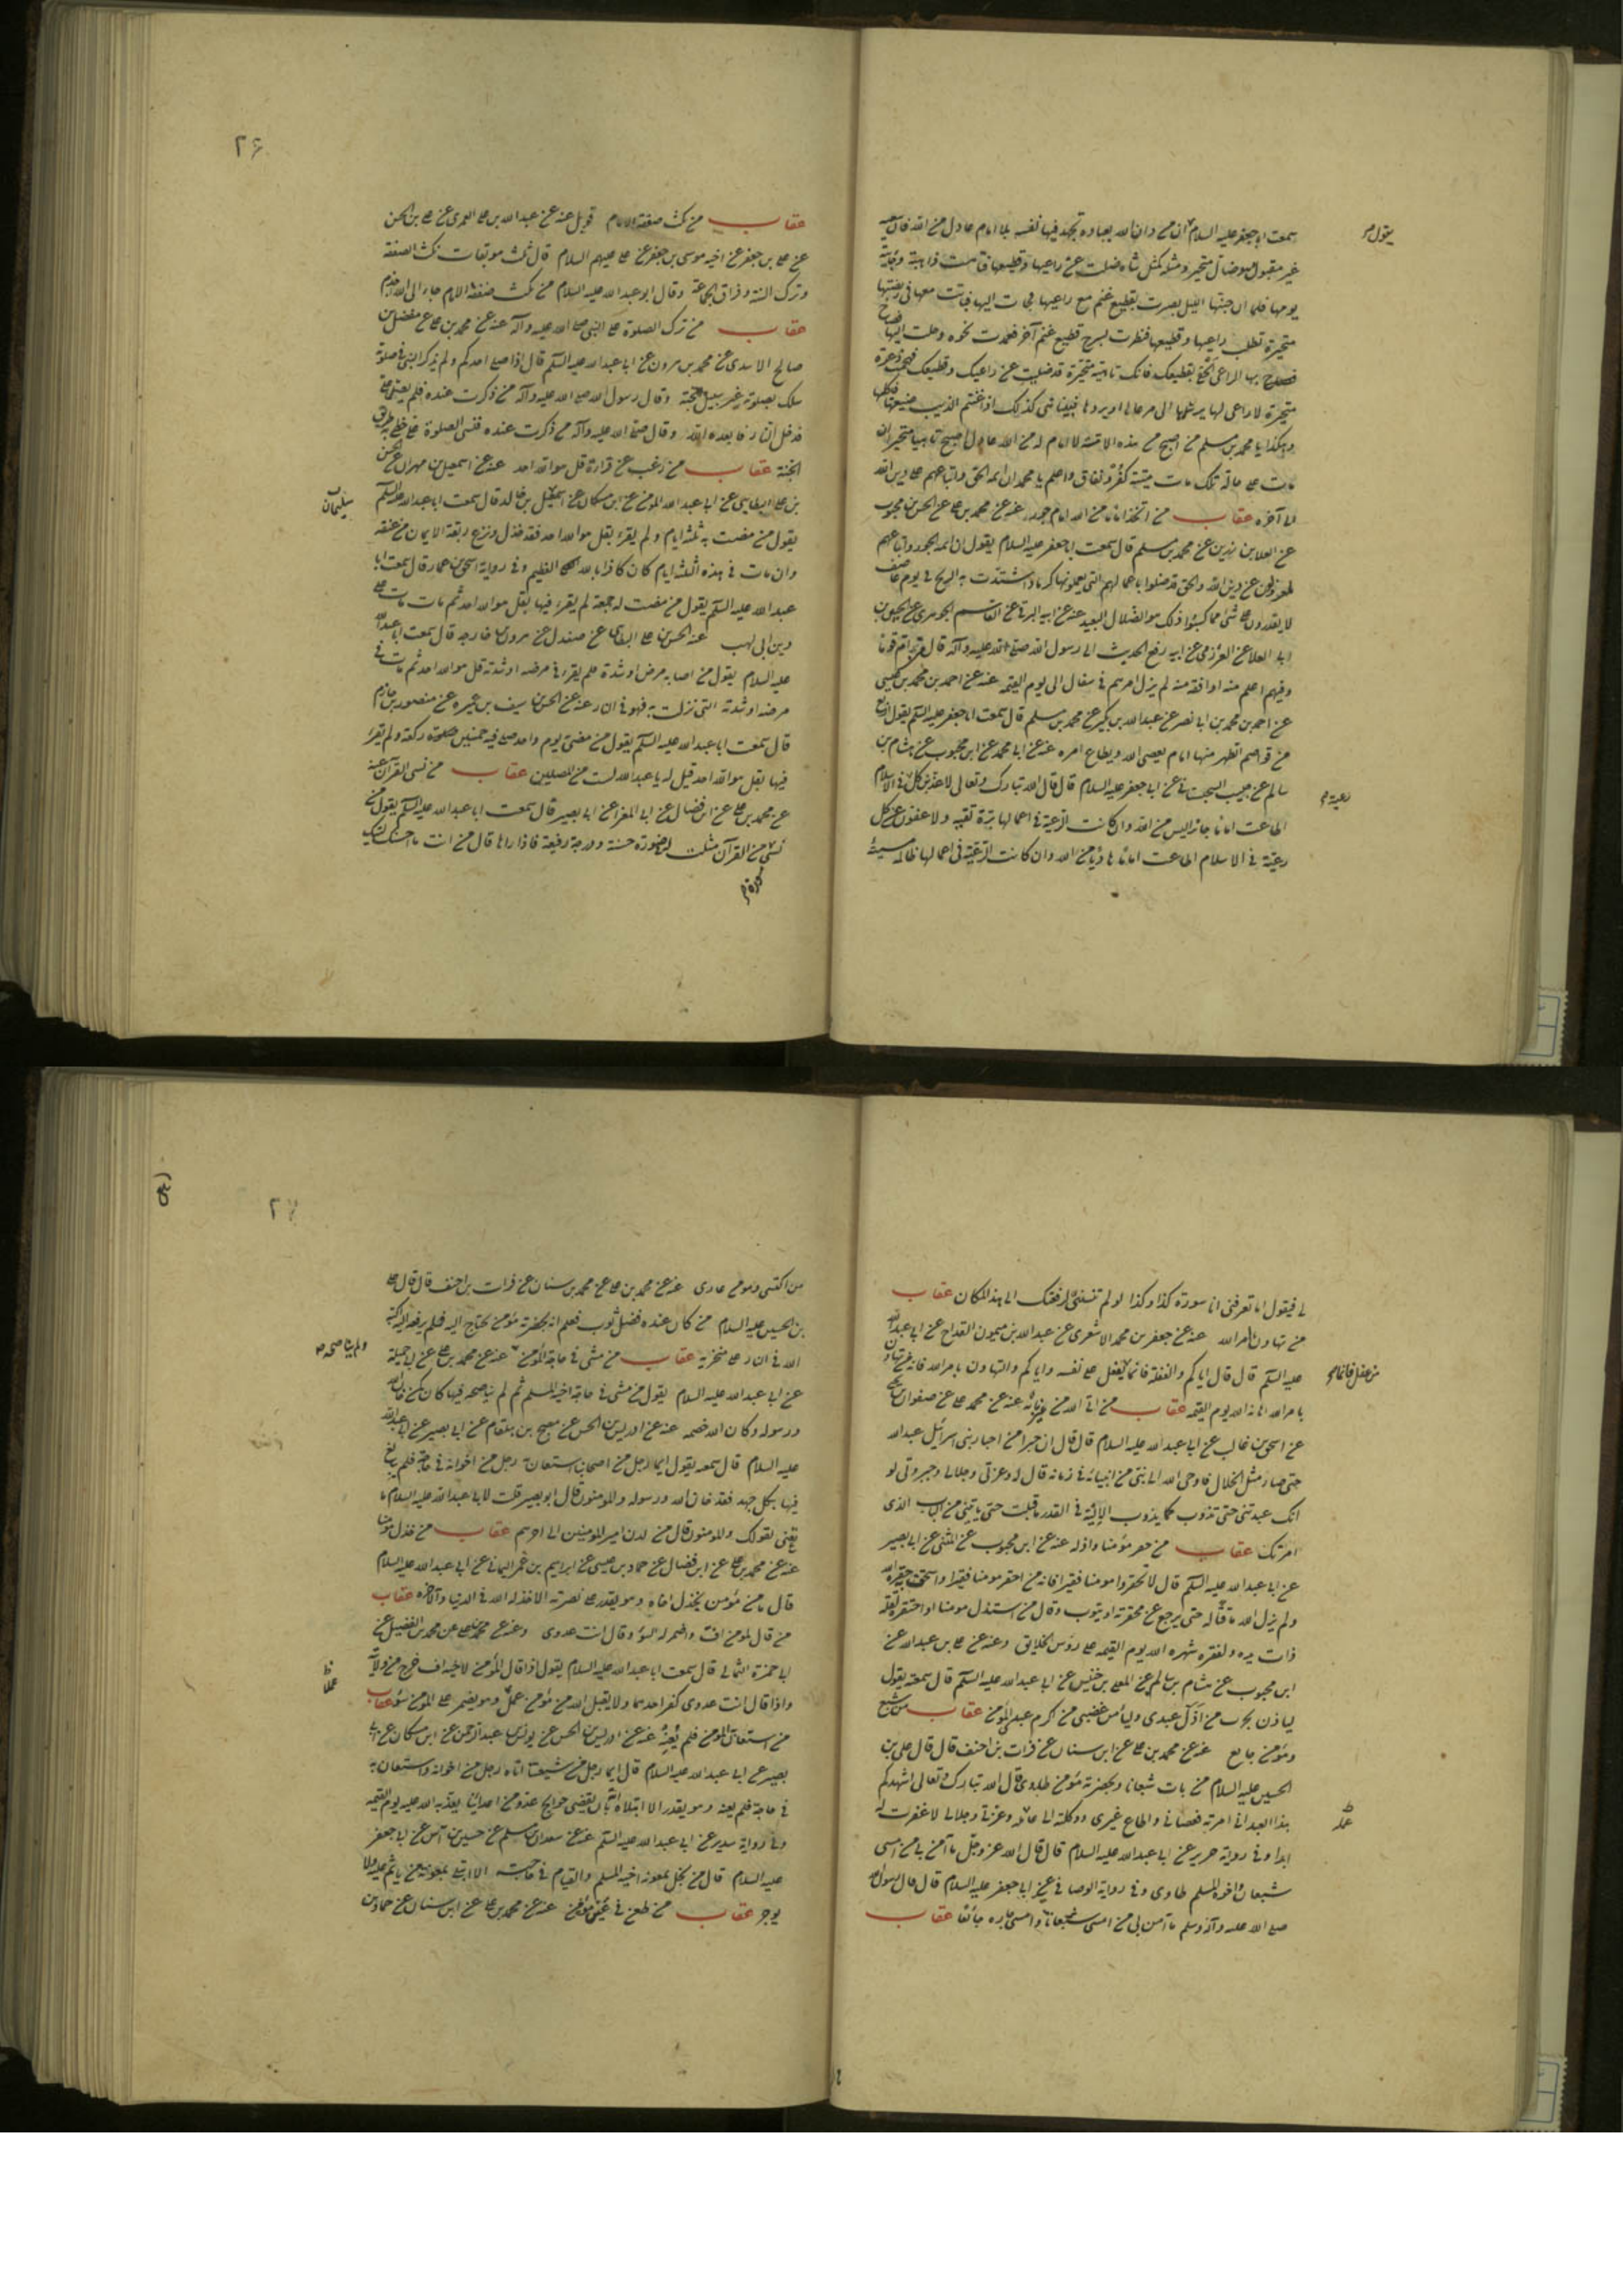 سمعت ابا جعفر عليه السلام ان من دان الله بعباده يجهد فيها نفسه بلا امام عادل من الله فان سعيه
يقول
غير مقبول وهو ضال متحير ومثله كمثل شاه ضلت عن راعيها وقطيعها فتاهت ذاهبة وجائية
يومها فلما ان جنها الليل بصرت بقطيع غنم مع راعيها فجات اليها فباتت معها في ربضتها
متحيرة تطلب راعيها وقطيعها فنظرت لسرح قطيع غنم آخر فعمدت نحوه وحنت اليها
فصاح بها الراعي الحقي بقطيعك فانك تائهة متحيرة قد ضللت عن راعيك وقطيعك فهجمت ذعرة
متحيرة لا راعى لها يرشدها الى مرعاها او يردها فبينا هي كذلك اذا اغتنم الذيب ضيعتها فاكلها
وهكذا يا محمد بن مسلم من اصبح من هذه الامة لا امام له من الله عادل اصبح تائها متحيرا ان
مات على حاله تلك مات ميتة كفر ونفاق واعلم يا محمد ان ائمه الحق واتباعهم على دين الله
الى آخره عقاب من اتخذ اماما من الله امام جور عنه عن محمد بن على عن الحسن بن محبوب
عن العلا بن رزين عن محمد بن مسلم قال سمعت ابا جعفر عليه السلام يقول ان ائمه الجور واتباعهم
لمعزولون عن دين الله والحق قد ضلوا باعمالهم التى يعملونها كرماد اشتدت به الريح فى يوم عاصف
لا يقدرون على شئ مما كسبوا ذلك هو الضلال البعيد عنه عن ابيه البرقى عن القاسم الجوهرى عن الحسين بن
ابى العلا عن العرزمى عن ابيه رفع الحديث الى رسول الله صلى الله عليه وآله قال من ام قوما
وفيهم اعلم منه او افقه منه لم يزل امرهم فى سفال الى يوم القيمه عنه عن احمد بن محمد بن عيسى
عن احمد بن محمد بن ابى نصر عن عبدالله بن بكير عن محمد بن مسلم قال سمعت ابا جعفر عليه السلم يقول اربع
من قواصم الظهر منها امام يعصى الله ويطاع امره عنه عن ابى محمد عن ابن محبوب عن هشام بن
سالم عن حبيب السجستانى عن ابى جعفر عليه السلام قال قال الله تبارك وتعالى لاعذبن كل فى الاسلام
رعية
اطاعت اماما جائرا ليس من الله وان كانت الرعية فى اعمالها برة تقية ولا عفون عن كل
رعية فى الاسلام اطاعت اماما هاديا من الله وان كانت الرعية فى اعمالها ظالمة مسيئة
٢۶
عقاب من نكث صفقة الامام عنه عن عبدالله بن على العمرى عن على بن الحسن
عن على بن جعفر عن اخيه موسى بن جعفر عن على عليهم السلام قال ثلث موبقات نكث الصفقة
وترك السنة وفراق الجماعة وقال ابو عبدالله عليه السلام من نكث صفقة الامام جاء الى الله اجذم
عقاب من ترك الصلوة على النبى صلى الله عليه وآله عنه عن محمد بن على عن مفضل بن
صالح الاسدى عن محمد بن هرون عن ابى عبدالله عليه السلم قال اذا صلى احدكم ولم يذكر النبى فى صلوته
سلك بصلوته غير سبيل الجنة وقال رسول الله صلى الله عليه وآله من ذكرت عنده فلم يصل على
فدخل النار فابعده الله وقال صلى الله عليه وآله من ذكرت عنده فنسى الصلوة على خطى به طريق
الجنة عقاب من رغب عن قراءة قل هو الله احد عنه عن اسمعيل بن مهران عن الحسن
بن على البطائنى عن ابى عبدالله المومن عن ابن مسكان عن اسمعيل بن خالد قال سمعت ابا عبدالله عليه السلم
سليمان
يقول من مضت به ثلثة ايام ولم يقرء بقل هو الله احد فقد خذل ونزع ربقة الايمان من عنقه
وان مات فى هذه الثلثه ايام كان كافرا بالله العظيم وفى رواية اسحق بن عمار قال سمعت ابا
عبدالله عليه السلم يقول من مضت له جمعة لم يقرء فيها بقل هو الله احد ثم مات مات على
دين ابى لهب عنه عن الحسن بن على البطائنى عن صندل عن هرون بن خارجه قال سمعت ابا عبدالله
عليه السلام يقول من اصابه مرض او شدة فلم يقرء فى مرضه او شدته قل هو الله احد ثم مات فى
مرضه او شدته التى نزلت به فهو فى النار عنه عن الحسن بن سيف بن عميره عن منصور بن حازم
قال سمعت ابا عبدالله عليه السلم يقول من مضى يوم واحد صلى فيه خمسين صلوة ركعة ولم يقرء
فيها بقل هو الله احد قيل له يا عبدالله لست من المصلين عقاب من نسى القرآن عنه
عن محمد بن على عن ابن فضال عن ابى المغرا عن ابى بصير قال سمعت ابا عبدالله عليه السلم يقول من
نسى من القرآن مثلت له فى صورة حسنة ودرجة رفيعة فاذا راها قال من انت ما احسنك ليتك
سورة
لى فيقول اما تعرفنى انا سورة كذا وكذا لو لم تنسنى لرفعتك الى هذا المكان عقاب
من تهاون بامر الله عنه عن جعفر بن محمد الاشعرى عن عبدالله بن ميمون القداح عن ابى عبدالله
عليه السلم قال قال اياكم والغفلة فانما يغفل على نفسه واياكم والتهاون بامر الله فانه من تهاون
من غفل فانما
بامر الله اهانه الله يوم القيمه عقاب من اتى الله من غير بابه عنه عن محمد بن على عن صفوان بن يحيى
عن اسحق بن غالب عن ابى عبدالله عليه السلام قال قال ان حبرا من احبار بنى اسرائيل عبدالله
حتى صار مثل الخلال فاوحى الله الى نبى من انبيائه فى زمانه قال له وعزتى وجلالى وجبروتى لو
انك عبدتنى حتى تذوب كما يذوب الالية فى القدر ما قبلت حتى ياتينى من الباب الذى
امرتك عقاب من حقر مؤمنا واذله عنه عن ابن محبوب عن المثنى عن ابى بصير
عن ابى عبدالله عليه السلم قال لا تحقروا مومنا فقيرا فانه من احقر مومنا فقيرا واستخف به حقره الله
ولم يزل الله ماقتا له حتى يرجع عن محقرته او يتوب وقال من استذل مومنا او احتقره لقلة
ذات يده ولفقره شهره الله يوم القيمه على رؤس الخلايق وعنه عن على بن عبدالله عن
ابن محبوب عن هشام بن سالم عن المعلى بن خنيس عن ابى عبدالله عليه السلم قال سمعته يقول
لياذن بحرب من اذل عبدى وليامن غضبى من اكرم عبدى المؤمن عقاب من شبع
ومؤمن جايع عنه عن محمد بن على عن ابن سنان عن فرات بن احنف قال قال على بن
الحسين عليه السلام من بات شبعانا وبحضرته مؤمن طاوى قال الله تبارك وتعالى اشهدكم
هذا العبد انى امرته فعصانى واطاع غيرى ووكلته الى عمله وعزتى وجلالى لا غفرت له
عمله
ابدا وفى رواية حريز عن ابى عبدالله عليه السلام قال قال الله عز وجل ما آمن بى من امسى
شبعان واخوه المسلم طاوى وفى رواية الوصافى عن ابى جعفر عليه السلام قال قال رسول الله
صلى الله عليه وآله وسلم ما آمن بى من امسى شبعانا وامسى جاره جائعا عقاب
٢٧
من اكتسى ومومن عارى عنه عن محمد بن على عن محمد بن سنان عن فرات بن احنف قال قال على
بن الحسين عليه السلام من كان عنده فضل ثوب فعلم انه بحضرته مؤمن يحتاج اليه فلم يدفعه اليه اكبه
الله فى النار على منخريه عقاب من مشى فى حاجة المؤمن عنه عن محمد بن على عن ابى جميلة
ولم يناصحه
عن ابى عبدالله عليه السلام يقول من مشى فى حاجة اخيه المسلم ثم لم يناصحه فيها كان كمن خان الله
ورسوله وكان الله خصمه عنه عن ادريس بن الحسن عن مصبح بن هلقام عن ابى بصير عن ابى عبدالله
عليه السلام قال سمعته يقول ايما رجل من اصحابنا استعان به رجل من اخوانه فى حاجة فلم يبالغ
فيها بكل جهد فقد خان الله ورسوله والمومنون قال ابو بصير قلت لابى عبدالله عليه السلام ما
تعنى بقولك والمومنون قال من لدن امير المومنين الى آخرهم عقاب من خذل مؤمنا
عنه عن محمد بن على عن ابن فضال عن حماد بن عيسى عن ابراهيم بن عمر اليمانى عن ابى عبدالله عليه السلام
قال ما من مؤمن يخذل اخاه وهو يقدر على نصرته الا خذله الله فى الدنيا والآخرة عقاب
من قال لمومن اف واضمر له السوء وقال انت عدوى وعنه عن محمد بن على عن محمد بن الفضيل عن
ابى حمزة الثمالى قال سمعت ابا عبدالله عليه السلام يقول اذا قال المؤمن لاخيه اف خرج من ولايته
واذا قال انت عدوى كفر احدهما ولا يقبل الله من مؤمن عمل وهو يضمر على المومن سوء عقاب
عملا
من استعان المومن فلم يعنه عنه عن ادريس بن الحسن عن يونس بن عبدالرحمن عن ابن مسكان عن ابى
بصير عن ابى عبدالله عليه السلام قال ايما رجل من شيعتنا اتاه رجل من اخوانه واستعان به
فى حاجة فلم يعنه وهو يقدر الا ابتلاه الله بان يقضى حوايج عدو من اعدائنا يعذبه الله عليه يوم القيمه
وفى رواية سدير عن ابى عبدالله عليه السلم عنه عن سعدان بن مسلم عن حسين بن انس عن ابى جعفر
عليه السلام قال من بخل بمعونة اخيه المسلم والقيام فى حاجته الا ابتلى بمعونة من ياثم عليه ولا
يوجر عقاب من طعن فى عين مؤمن عنه عن محمد بن على عن ابن سنان عن حماد بن